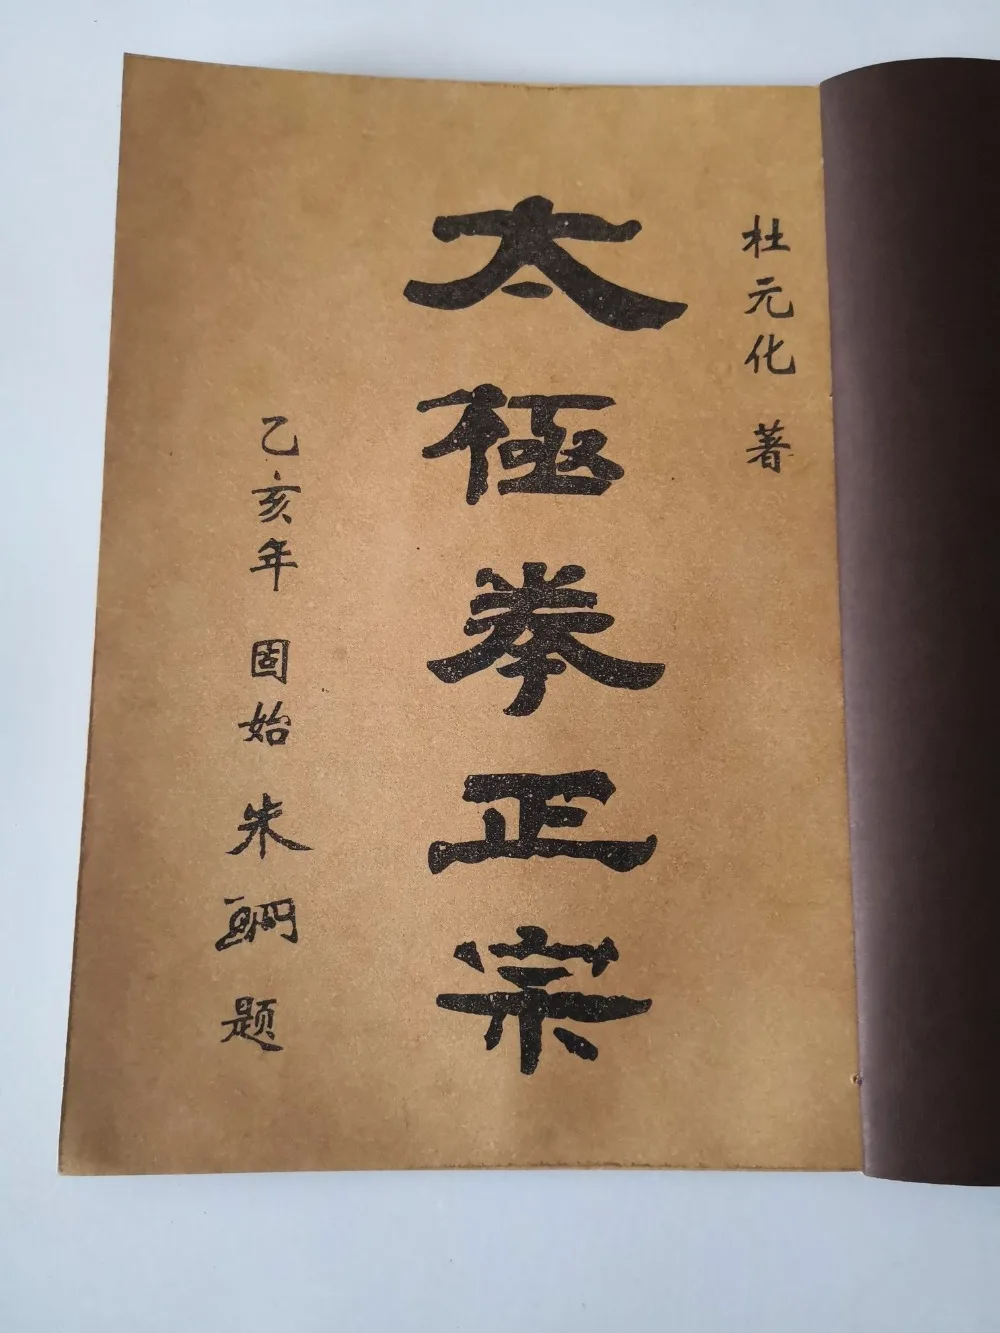 杜元化 著
太極拳正宗
乙亥年 固始 朱 题